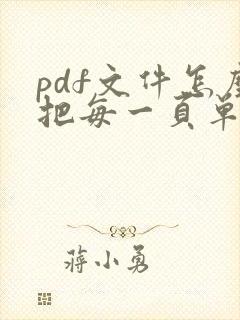 pdf文件怎
把每一页单
蒋小勇